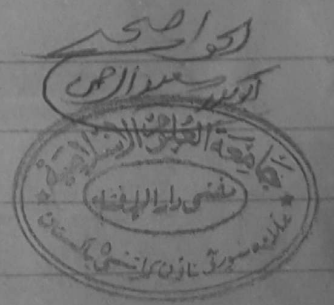 الجواب صحیح
سعید الرحمن
جامعة العلوم الإسلامية
مفتی دار الافتاء
علامہ بنوری ٹاؤن کراچی نمبر ۵ پاکستان